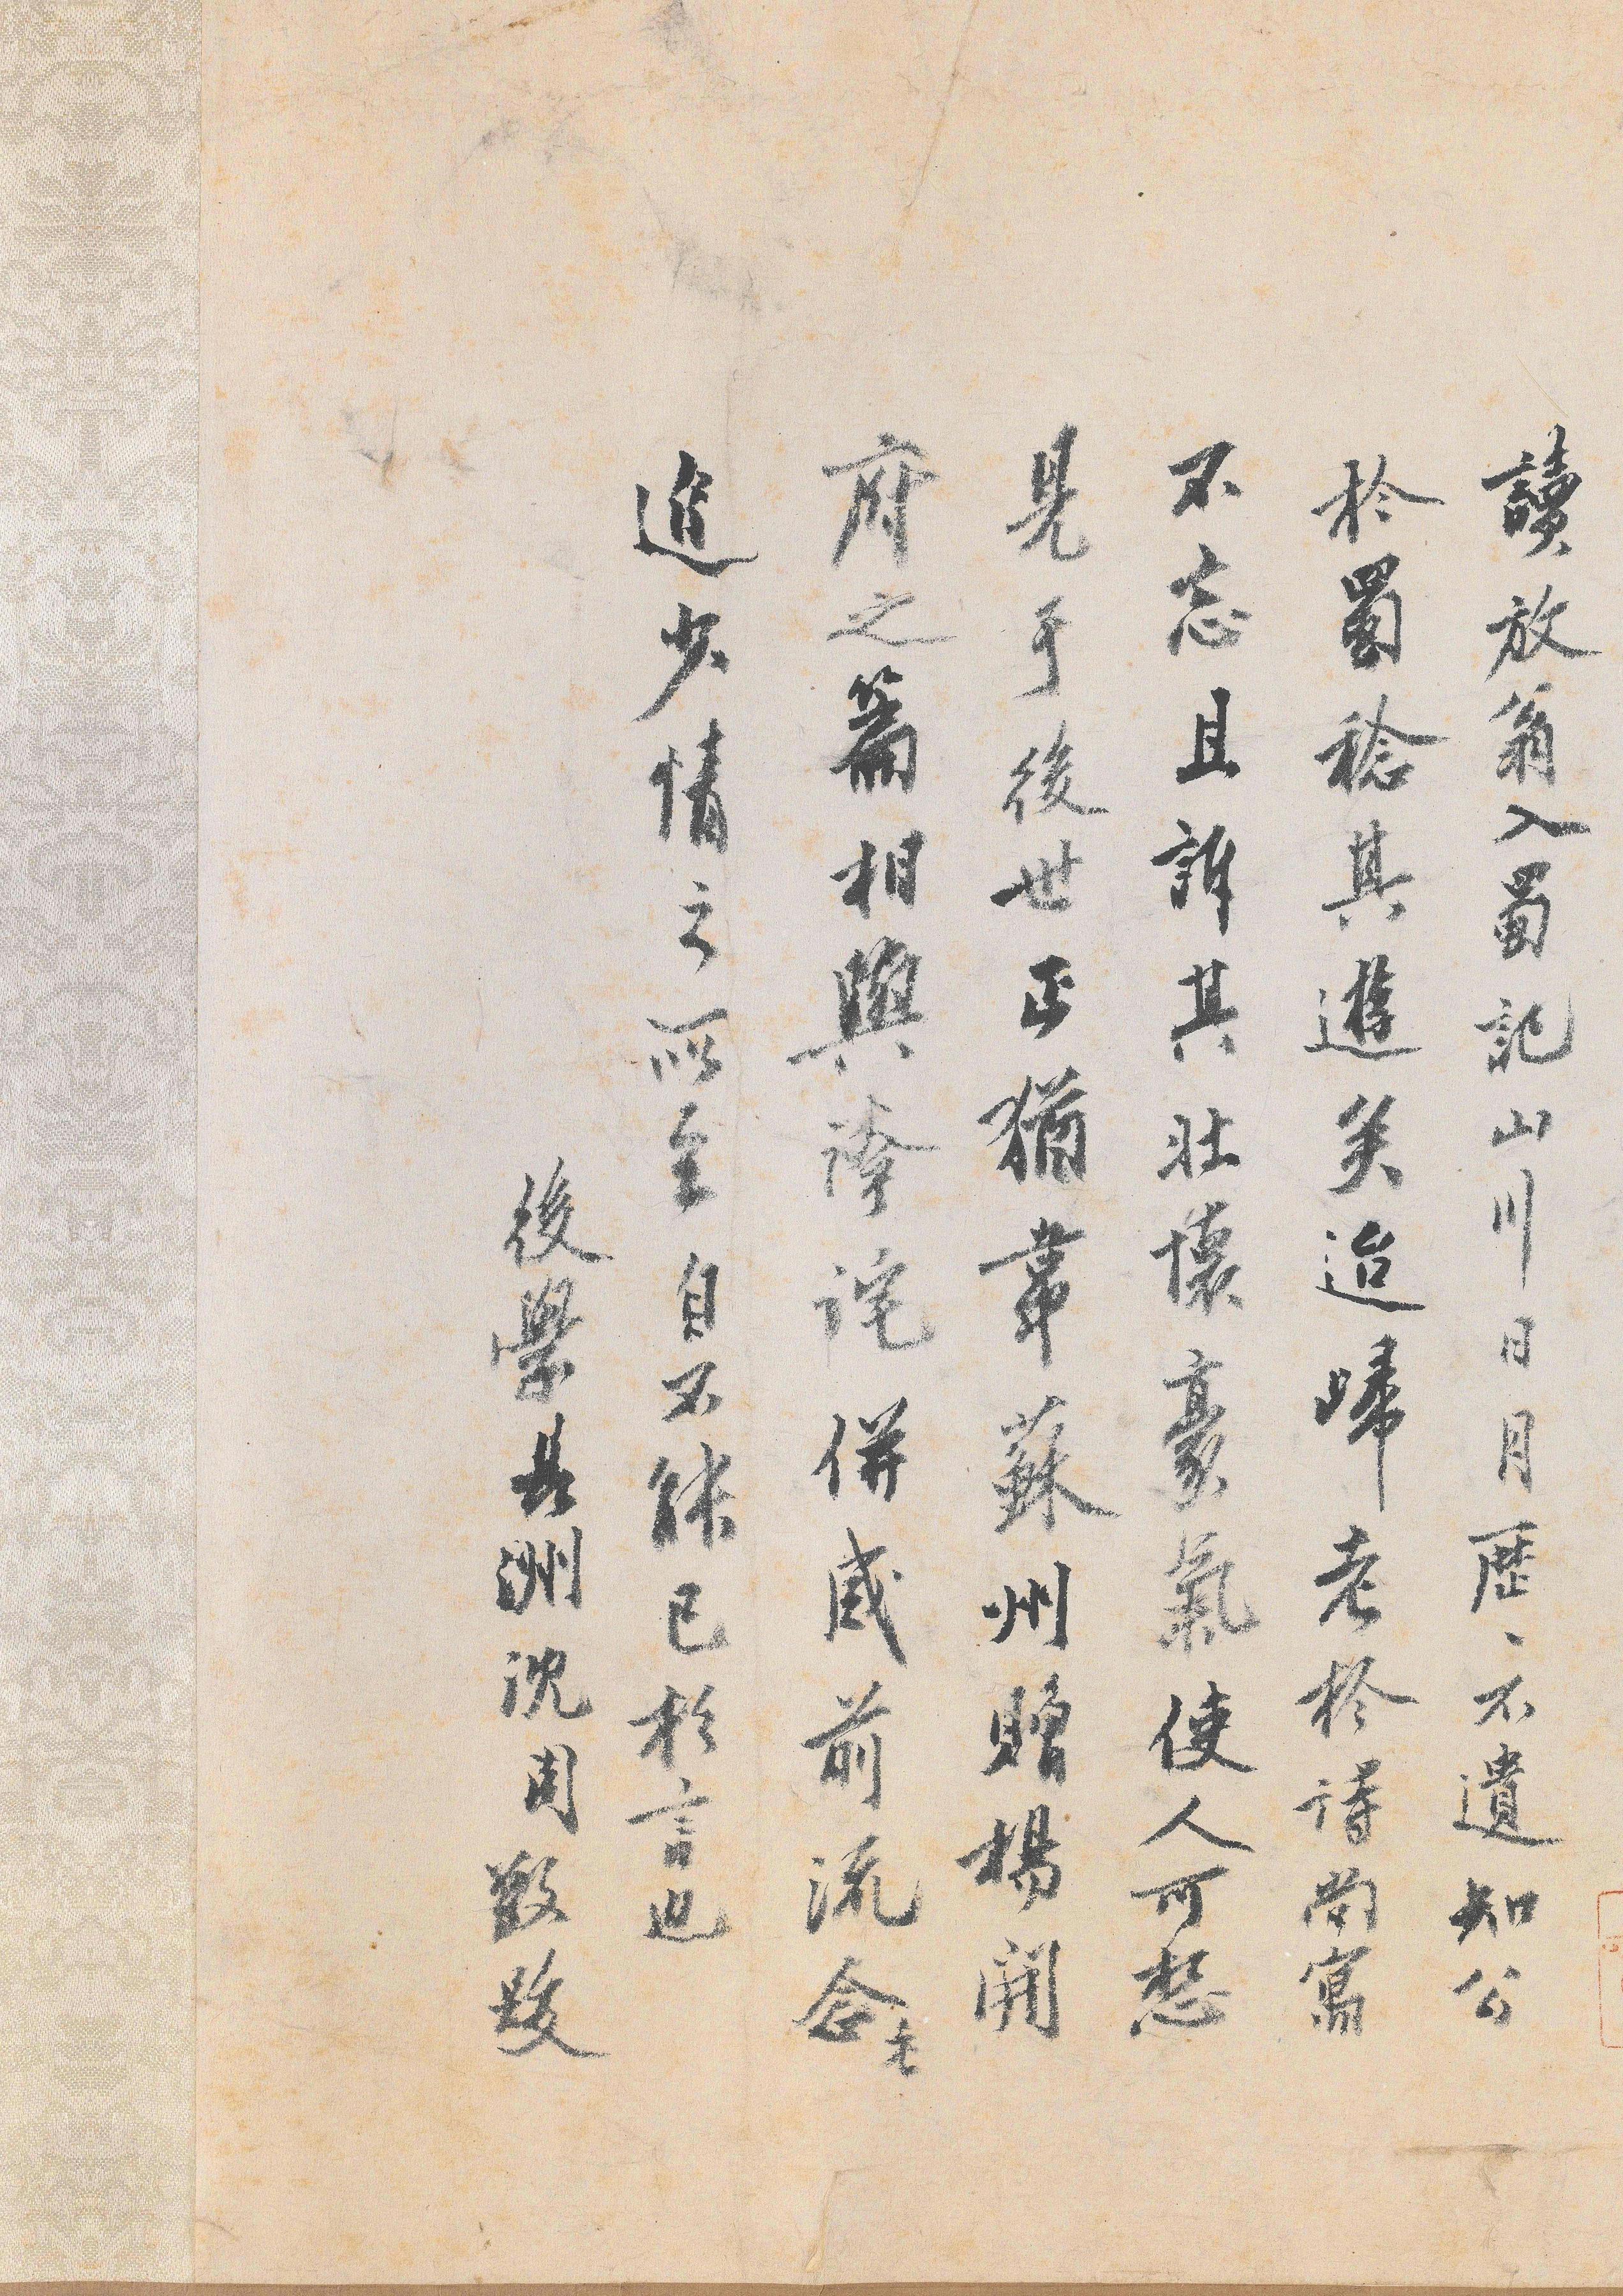 讀放翁入蜀記山川日月歷、不遺知公
於蜀稔其遊矣迨歸老於詩尚寓
不忘且訴其壯懷豪氣使人可想
見于後世正猶韋蘇州贈楊開
府之篇相與誇詫併感前流念老
追少情之所至自不能已於言也
後學長洲沈周敬跋